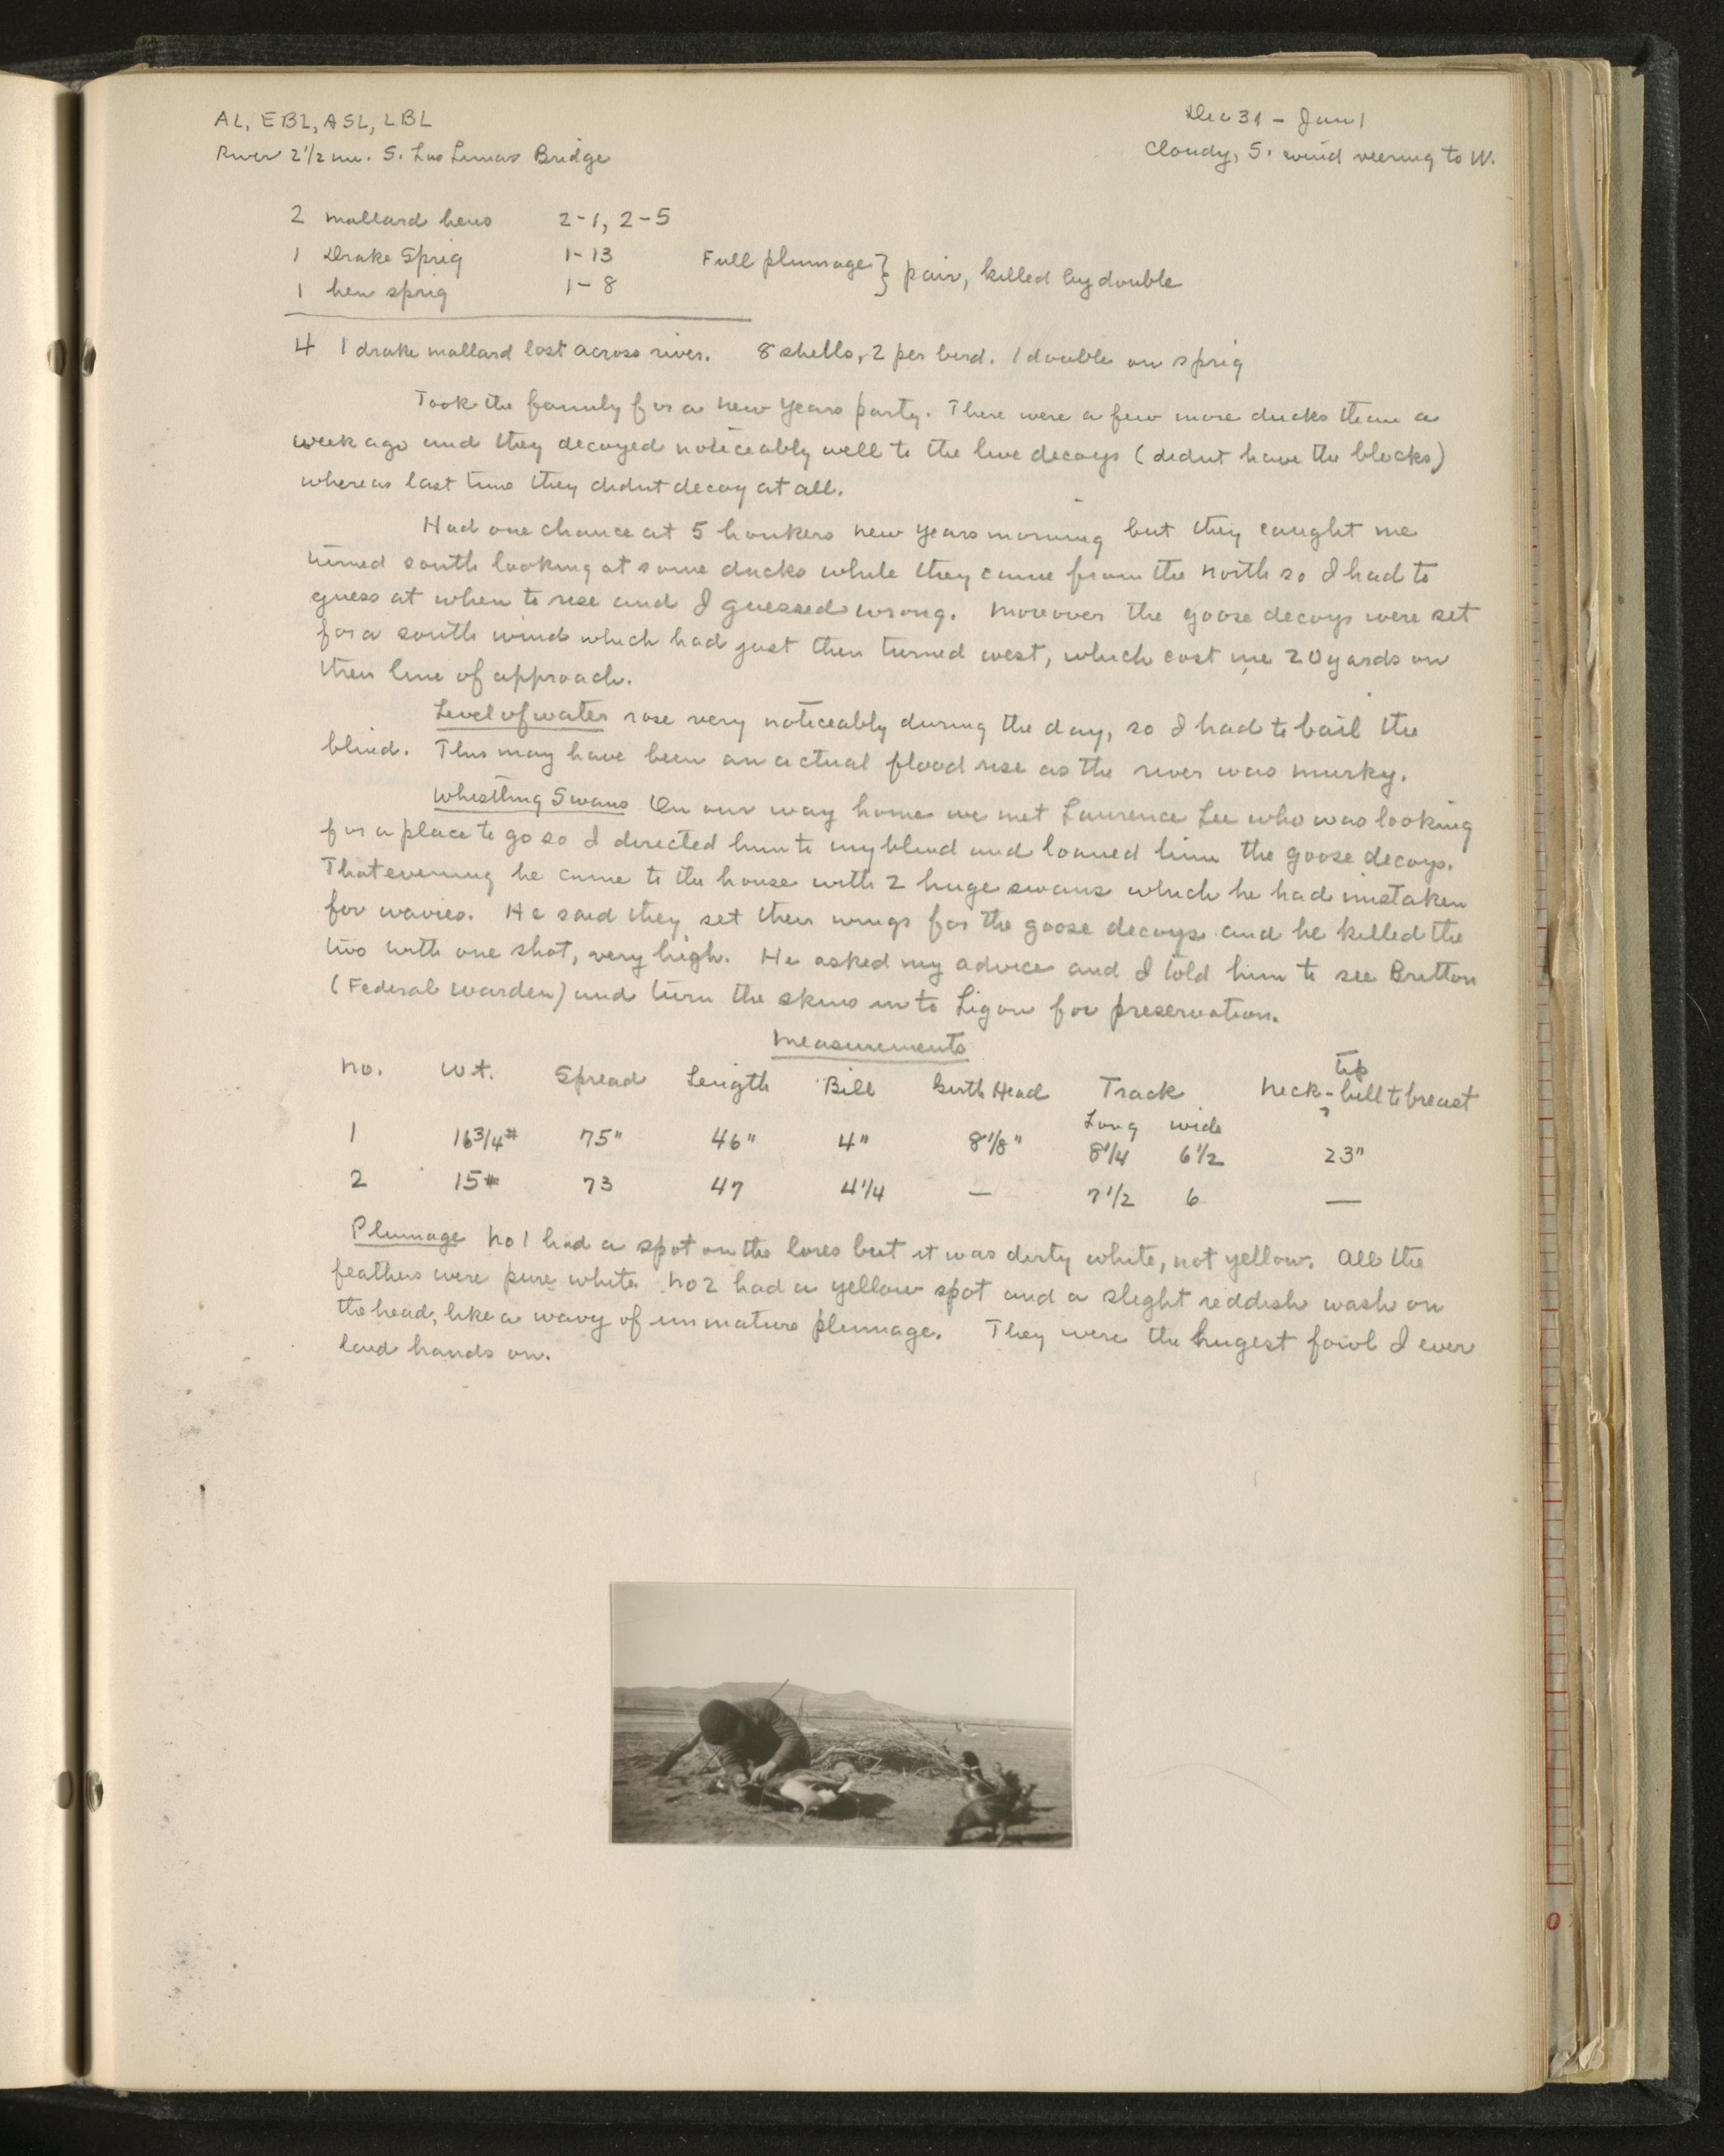 AL, EBL, ASL, LBL
Dec 31 - Jan 1
River 2 1/2 mi. S. Los Lunas Bridge
Cloudy, S. wind veering to W.
2 mallard hens 2-1, 2-5
1 Drake Sprig 1-13 Full plumage } pair, killed by double
1 hen sprig 1-8
4 1 drake mallard lost across river. 8 shells, 2 per bird. 1 double on sprig
Took the family for a new years party. There were a few more ducks than a
week ago and they decoyed noticeably well to the live decoys (didnt have the blocks)
whereas last time they didnt decoy at all.
Had one chance at 5 honkers new years morning but they caught me
turned south looking at some ducks while they came from the north so I had to
guess at when to rise and I guessed wrong. Moreover the goose decoys were set
for a south wind which had just then turned west, which cost me 20 yards on
their line of approach.
Level of water rose very noticeably during the day, so I had to bail the
blind. This may have been an actual flood rise as the river was murky.
Whistling Swans On our way home we met Laurence Lee who was looking
for a place to go so I directed him to my blind and loaned him the goose decoys.
That evening he came to the house with 2 huge swans which he had mistaken
for wavies. He said they set their wings for the goose decoys and he killed the
two with one shot, very high. He asked my advice and I told him to see Britton
(Federal warden) and turn the skins in to Ligon for preservation.
Measurements
No. Wt. Spread Length Bill Girth Head Track Neck - bill tip to breast
Long wide
1 16 3/4# 75" 46" 4" 8 1/8" 8 1/4 6 1/2 23"
2 15# 73 47 4 1/4 — 7 1/2 6 —
Plumage No 1 had a spot on the lores but it was dirty white, not yellow. All the
feathers were pure white. No 2 had a yellow spot and a slight reddish wash on
the head, like a wavy of immature plumage. They were the hugest fowl I ever
laid hands on.
0